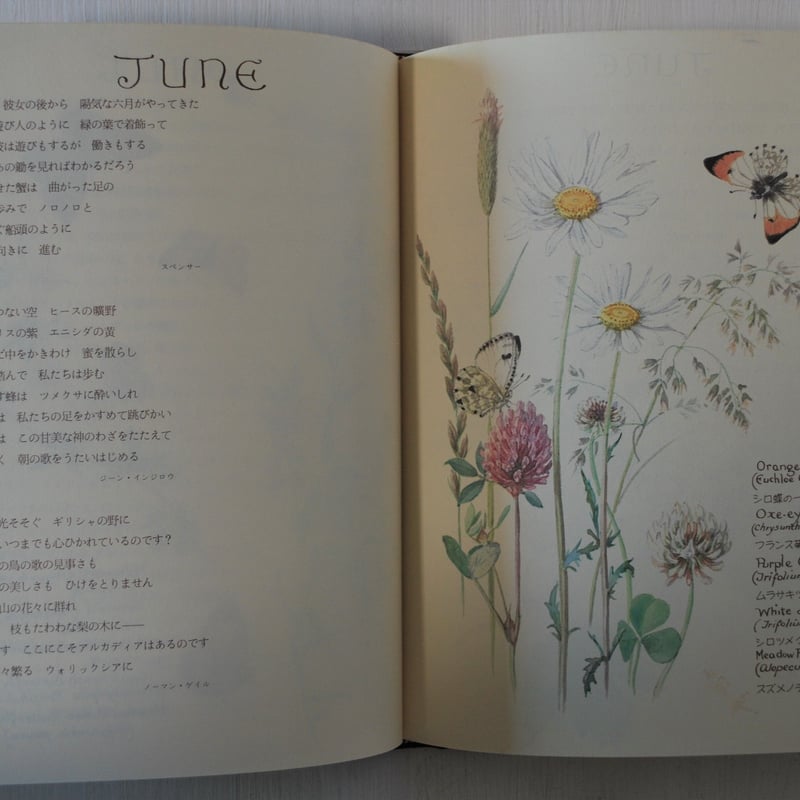 JUNE
彼女の後から 陽気な六月がやってきた
び人のように 緑の葉で着飾って
は遊びもするが 働きもする
の鋤を見ればわかるだろう
せた蟹は 曲がった足の
歩みで ノロノロと
船頭のように
向きに 進む
スペンサー
ない空 ヒースの曠野
リスの紫 エニシダの黄
中をかきわけ 蜜を散らし
踏んで 私たちは歩む
す蜂は ツメクサに酔いしれ
は 私たちの足をかすめて跳びかい
は この甘美な神のわざをたたえて
く 朝の歌をうたいはじめる
ジーン・インジロウ
光そそぐ ギリシャの野に
いつまでも心ひかれているのです?
の鳥の歌の見事さも
の美しさも ひけをとりません
山の花々に群れ
枝もたわわな梨の木に——
す ここにこそアルカディアはあるのです
々繁る ウォリックシアに
ノーマン・ゲイル
Orange
(Euchloe
シロ蝶の一
Oxe-ey
(Chrysanth
フランス
Purple
(Trifolium
ムラサキツ
White
(Trifoliu
シロツメク
Meadow F
(Alopecu
スズメノテ